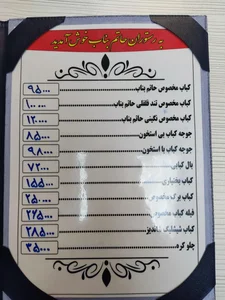 به رستوران حاتم بناب خوش آمدید
کباب مخصوص حاتم بناب ۹۵۰۰۰
کباب مخصوص تند فلفلی حاتم بناب ۱۰۰۰۰۰
کباب مخصوص نگینی حاتم بناب ۱۲۰۰۰۰
جوجه کباب بی استخون ۸۵۰۰۰
جوجه کباب با استخون ۹۸۰۰۰
بال کبابی ۷۲۰۰۰
کباب بختیاری ۱۵۵۰۰۰
کباب برگ مخصوص ۲۵۰۰۰۰
فیله کباب مخصوص ۲۲۵۰۰۰
کباب شیشلیک شاندیز ۲۸۵۰۰۰
چلو کره ۳۵۰۰۰